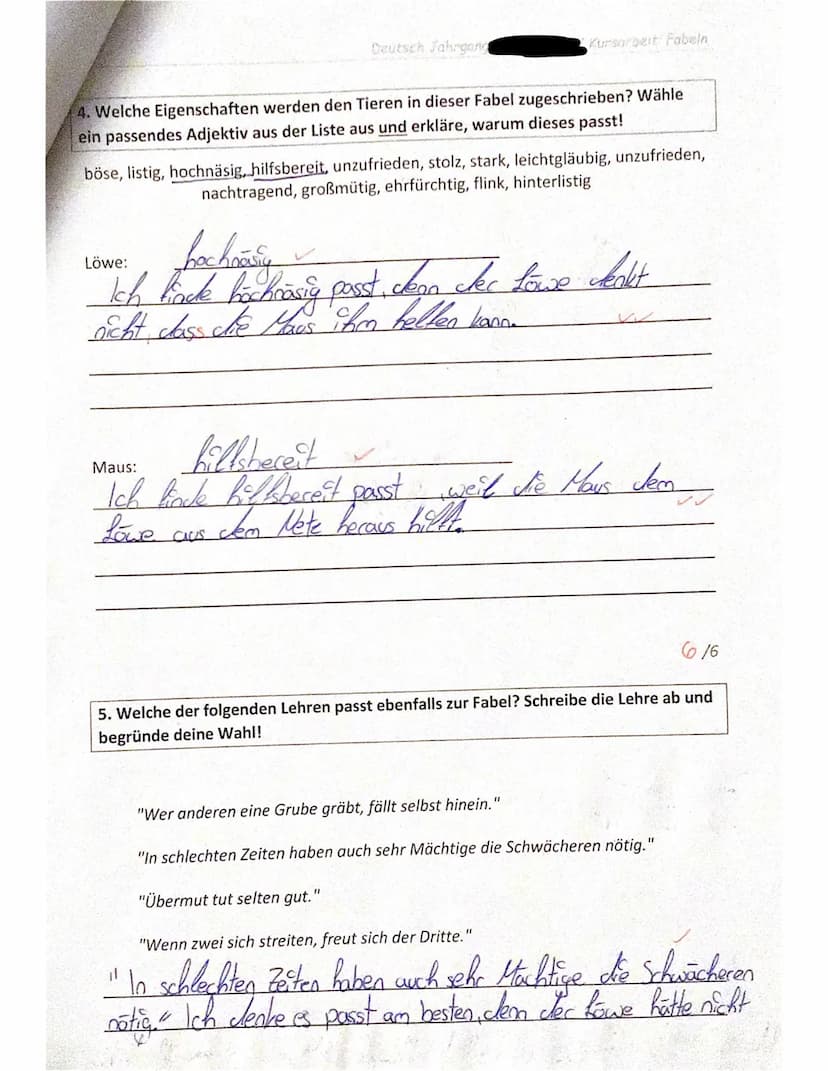 Deutsch Jahrgang Kursarbeit Fabeln
4. Welche Eigenschaften werden den Tieren in dieser Fabel zugeschrieben? Wähle
ein passendes Adjektiv aus der Liste aus und erkläre, warum dieses passt!
böse, listig, hochnäsig, hilfsbereit, unzufrieden, stolz, stark, leichtgläubig, unzufrieden,
nachtragend, großmütig, ehrfürchtig, flink, hinterlistig
Löwe: hochnäsig
Ich finde hochnäsig passt, denn der Löwe denkt
nicht, dass die Maus ihm helfen kann.
Maus: hilfsbereit
Ich finde hilfsbereit passt, weil die Maus dem
Löwe aus dem Netz heraus hilft.
6/6
5. Welche der folgenden Lehren passt ebenfalls zur Fabel? Schreibe die Lehre ab und
begründe deine Wahl!
"Wer anderen eine Grube gräbt, fällt selbst hinein."
"In schlechten Zeiten haben auch sehr Mächtige die Schwächeren nötig."
"Übermut tut selten gut."
"Wenn zwei sich streiten, freut sich der Dritte."
"In schlechten Zeiten haben auch sehr Mächtige die Schwächeren
nötig." Ich denke es passt am besten, denn der Löwe hätte nicht